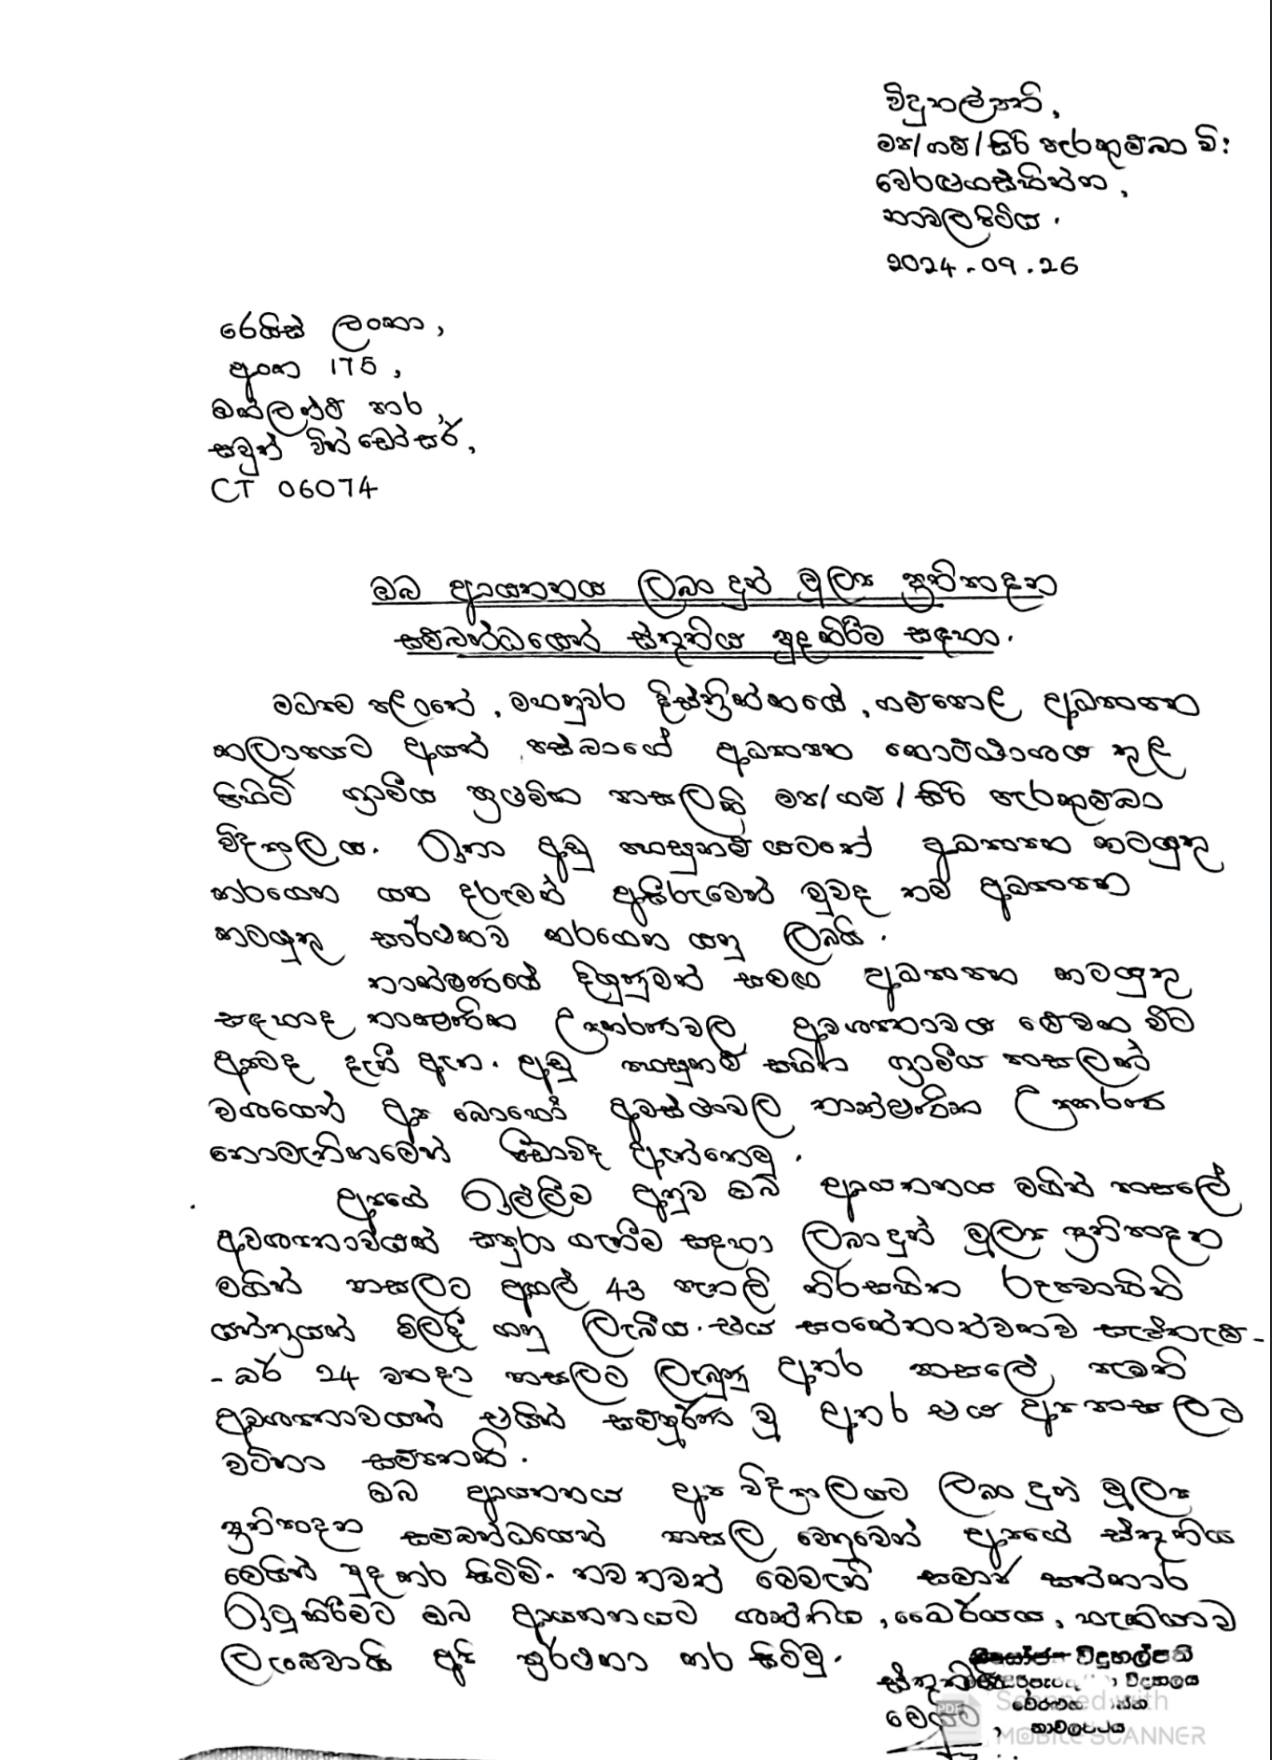 විදුහල්පති,
මප/ගම්/සිරි පැරකුම්බා වි:
වෙරළුගස්හින්න,
නාවලපිටිය.
2024.09.26
රෙයිස් ලංකා,
අංක 175,
ඕක්ලන්ඩ් පාර,
සවුත් වින්ඩ්සෝර්,
CT 06074
ඔබ ආයතනය ලබා දුන් මූල්‍ය ප්‍රතිපාදන
සම්බන්ධයෙන් ස්තූතිය පුද කිරීම සඳහා.
මධ්‍යම පළාතේ, මහනුවර දිස්ත්‍රික්කයේ, ගම්පොල අධ්‍යාපන
කලාපයට අයත් පස්බාගේ අධ්‍යාපන කොට්ඨාශය තුළ
පිහිටි ග්‍රාමීය ප්‍රාථමික පාසලකි මප/ගම්/සිරි පැරකුම්බා
විද්‍යාලය. ඉතා අඩු පහසුකම් යටතේ අධ්‍යාපන කටයුතු
කරගෙන යන දරුවන් අසීරුවෙන් වුවද තම අධ්‍යාපන
කටයුතු සාර්ථකව කරගෙන යනු ලබයි.
තාක්ෂණයේ දියුණුවත් සමඟ අධ්‍යාපන කටයුතු
සඳහාද තාක්ෂණික උපකරණවල අවශ්‍යතාවය මේ වන විට
අපටද දැනී ඇත. අඩු පහසුකම් සහිත ග්‍රාමීය පාසලක්
වශයෙන් අප බොහෝ අවස්ථාවල තාක්ෂණික උපකරණ
නොමැතිකමෙන් පීඩාවිඳ ඇත්තෙමු.
අපගේ ඉල්ලීම අනුව ඔබ ආයතනය මගින් පාසලේ
අවශ්‍යතාවයක් සපුරා ගැනීම සඳහා ලබා දුන් මූල්‍ය ප්‍රතිපාදන
මගින් පාසලට අඟල් 43 පැතලි තිරසහිත රූපවාහිනී
යන්ත්‍රයක් මිලදී ගනු ලැබීය. එය සංකේතාත්මකව සැප්තැම්-
- බර් 24 වනදා පාසලට ලැබුණු අතර පාසලේ පැවති
අවශ්‍යතාවයක් එයින් සම්පූර්ණ වූ අතර එය අප පාසලට
වටිනා සම්පතකි.
ඔබ ආයතනය අප විද්‍යාලයට ලබා දුන් මූල්‍ය
ප්‍රතිපාදන සම්බන්ධයෙන් පාසල වෙනුවෙන් අපගේ ස්තූතිය
මෙයින් පුද කර සිටිමි. තව තවත් මෙවැනි සමාජ සත්කාර
ඉටුකිරීමට ඔබ ආයතනයට ශක්තිය, ධෛර්යය, හැකියාව
ලැබේවායි අපි ප්‍රාර්ථනා කර සිටිමු.
ස්තූතියි
මෙයට,
විදුහල්පති
විද්‍යාලය
නාවලපිටිය
Scanned with
MOBILE SCANNER
PDF